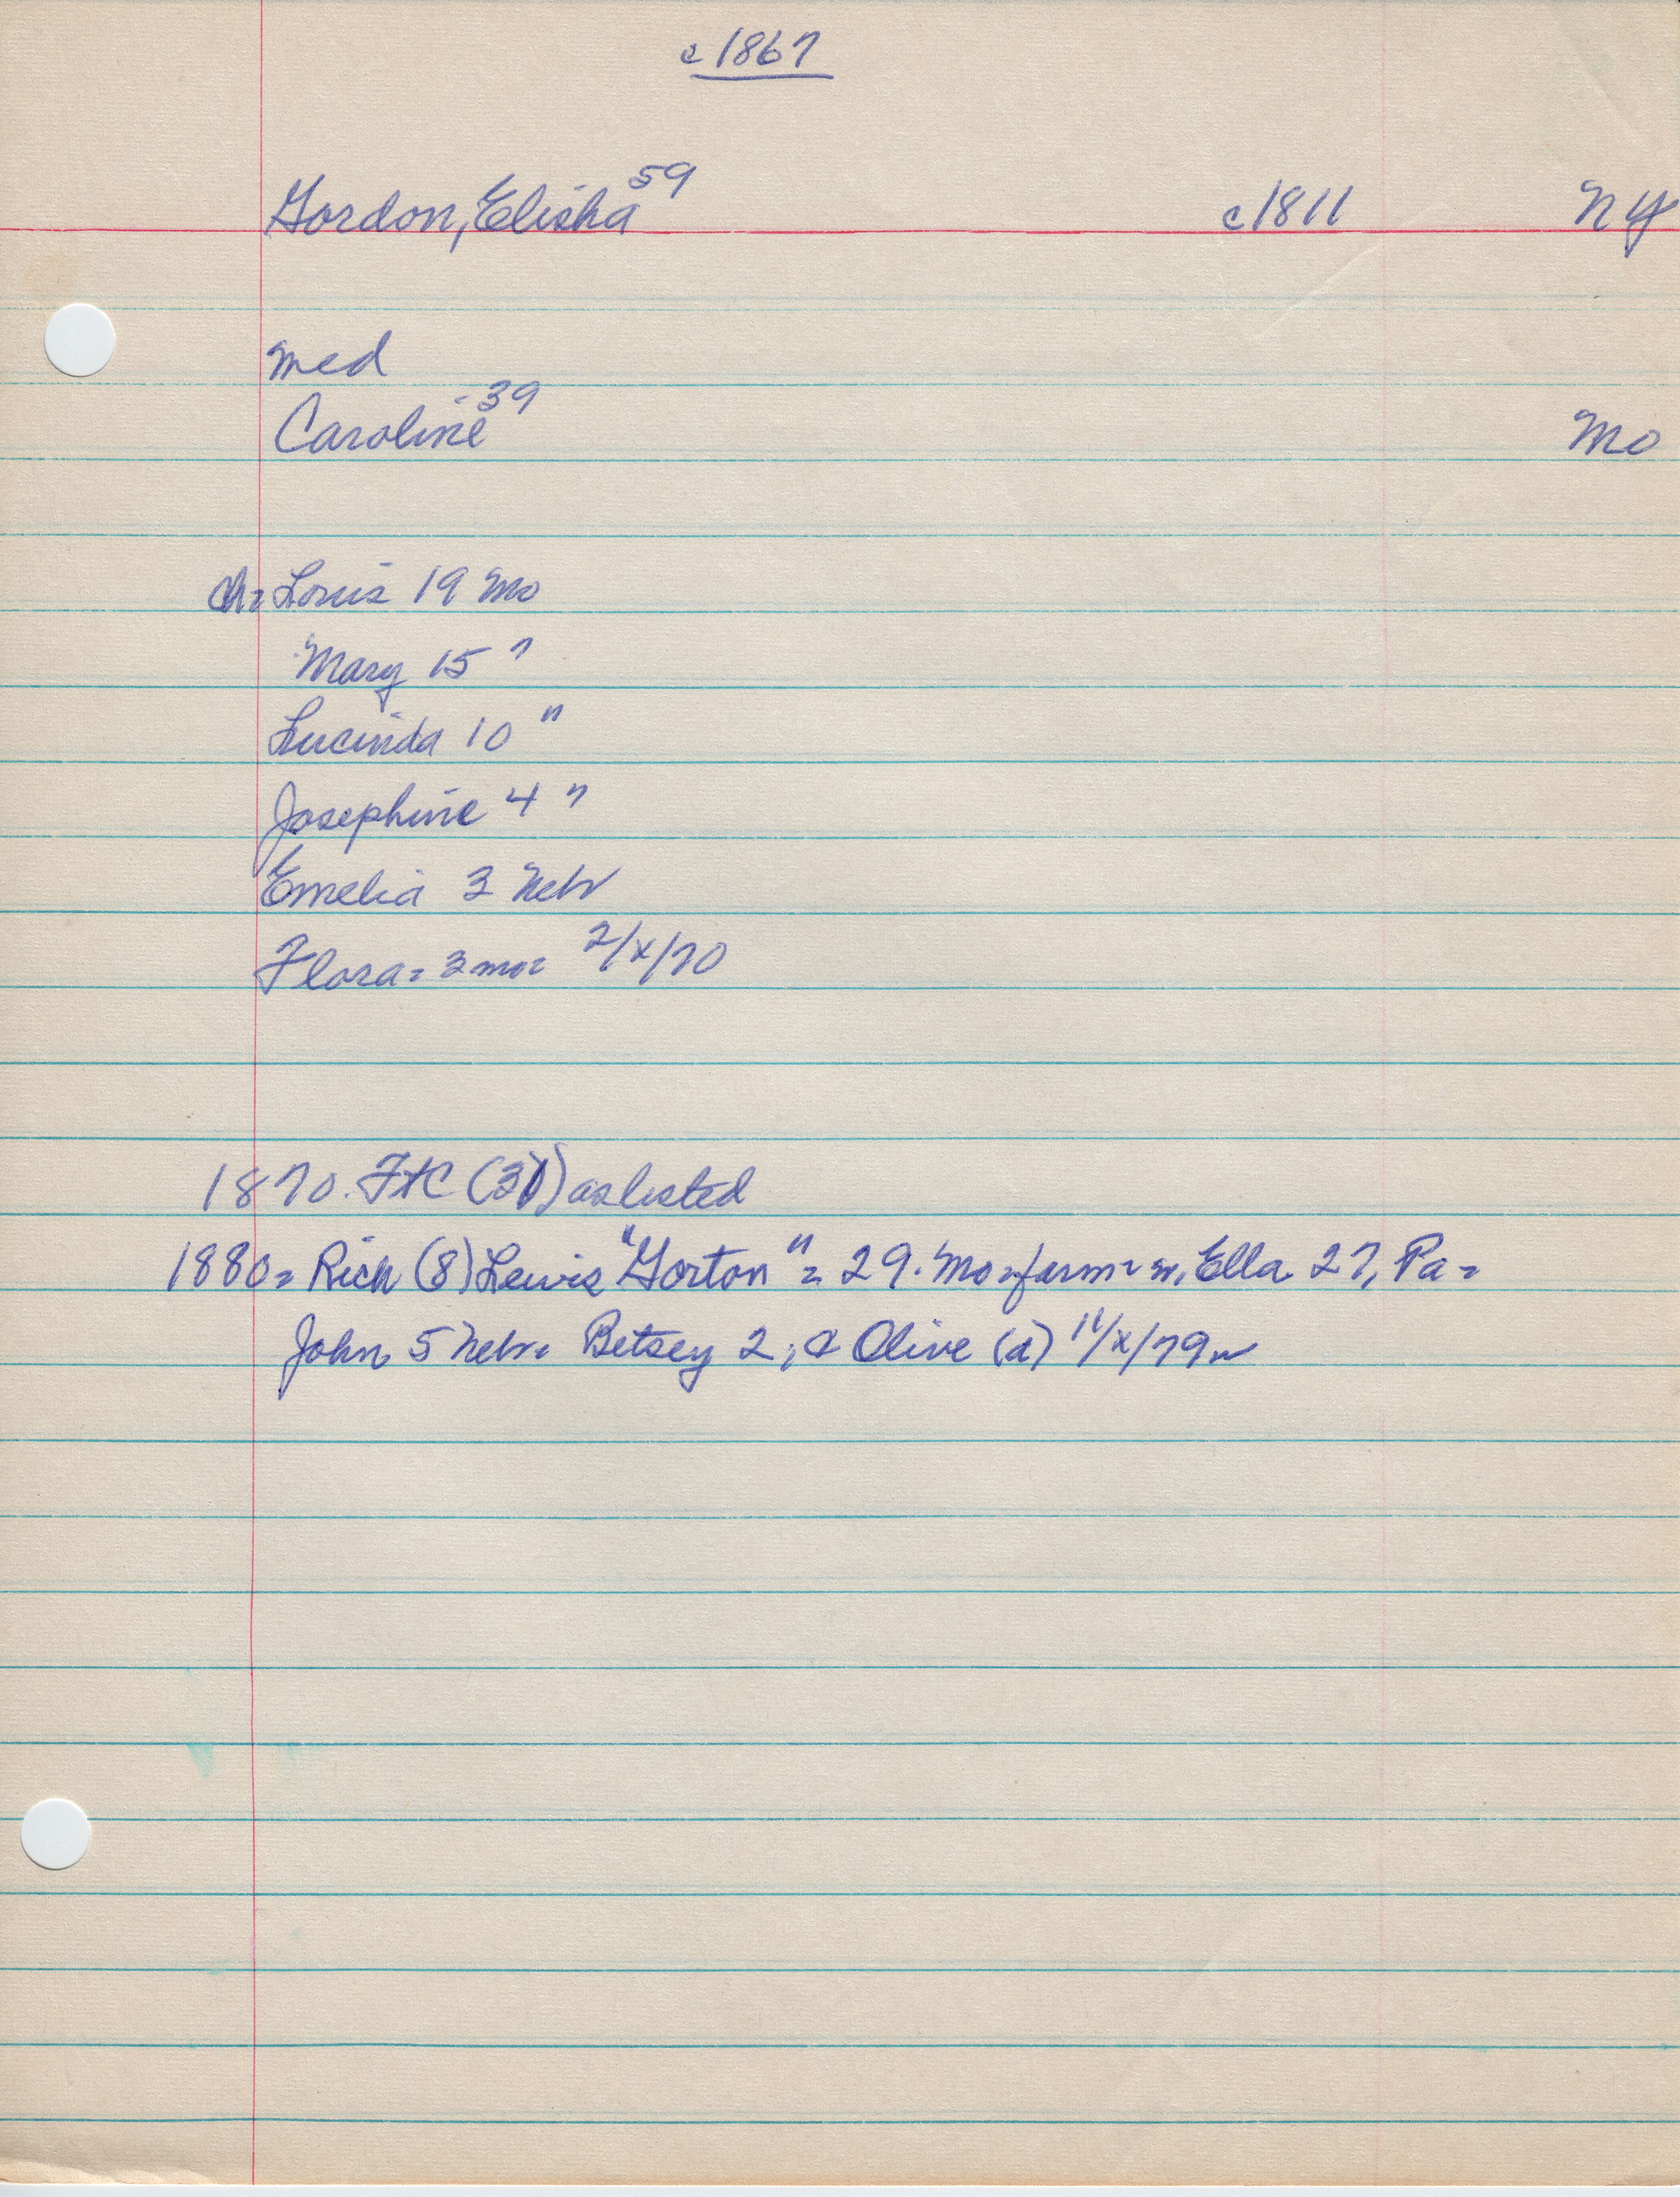 c1867
Gordon, Elisha 59 c1811 NY
med
Caroline - 39 Mo
ch= Louis 19 Mo
Mary 15 "
Lucinda 10 "
Josephine 4 "
Emelia 3 Nebr
Flora= 3 mo= 2/x/70
1870. FtC (31) as listed
1880= Rich (8) Lewis "Gorton" = 29. Mo=farm= w, Ella 27, Pa=
John 5 Nebr= Betsey 2, & Olive (d) 11/x/79